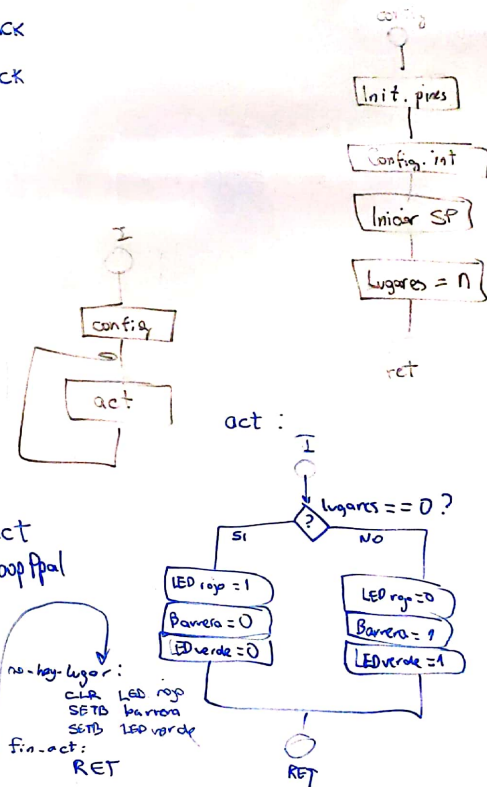 CK
CK
config
Init. pines
Config. int
Iniciar SP
Lugares = n
ret
I
config
act
act :
I
lugares == 0 ?
?
SI
NO
LED rojo = 1
Barrera = 0
LED verde = 0
LED rojo = 0
Barrera = 1
LED verde = 1
RET
ct
oop Ppal
no-hay-lugar :
CLR LED rojo
SETB barrera
SETB LED verde
fin-act :
RET